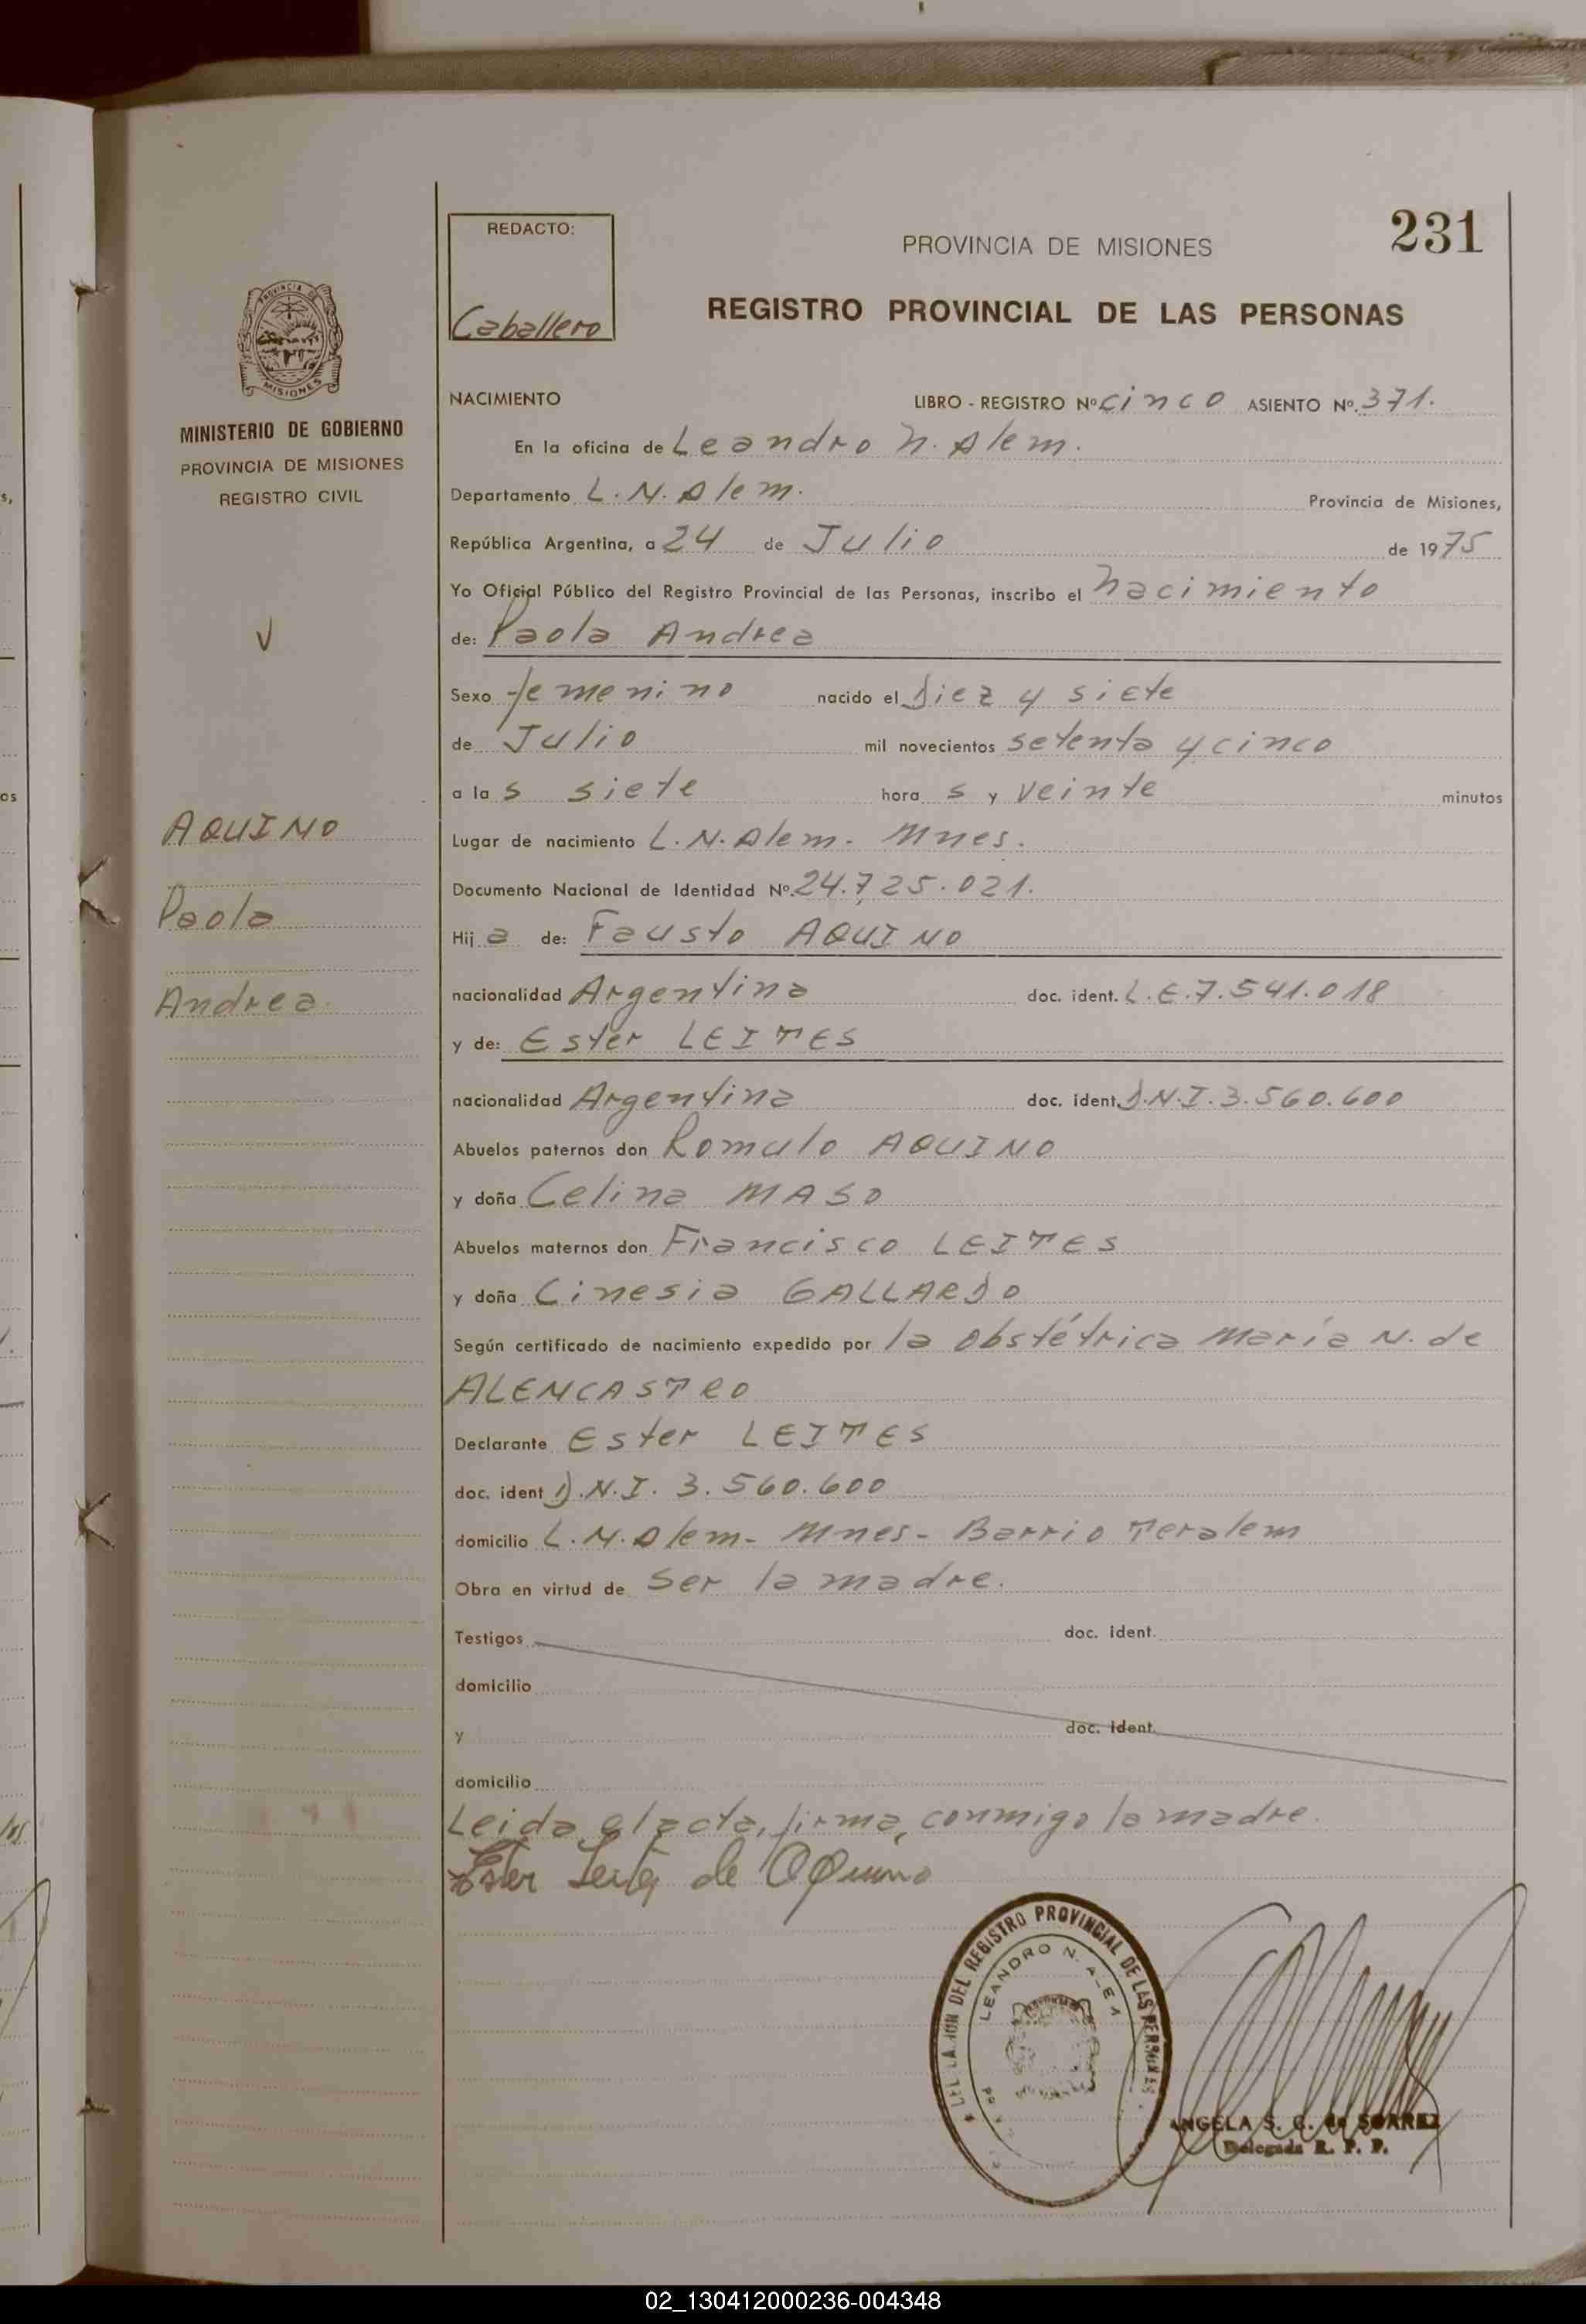 REDACTO:
Caballero
231
PROVINCIA DE MISIONES
REGISTRO PROVINCIAL DE LAS PERSONAS
PROVINCIA DE
MISIONES
MINISTERIO DE GOBIERNO
PROVINCIA DE MISIONES
REGISTRO CIVIL
AQUINO
Paola
Andrea
NACIMIENTO LIBRO - REGISTRO Nº cinco ASIENTO Nº. 371.
En la oficina de Leandro N. Alem.
Departamento L. N. Alem. Provincia de Misiones,
República Argentina, a 24 de Julio de 1975
Yo Oficial Público del Registro Provincial de las Personas, inscribo el nacimiento
de: Paola Andrea
Sexo femenino nacido el Diez y siete
de Julio mil novecientos setenta y cinco
a las siete horas y veinte minutos
Lugar de nacimiento L. N. Alem - Mnes.
Documento Nacional de Identidad Nº. 24.725.021.
Hija de: Fausto AQUINO
nacionalidad Argentina doc. ident. L.E. 7.541.018
y de: Ester LEITES
nacionalidad Argentina doc. ident. D.N.I. 3.560.600
Abuelos paternos don Romulo AQUINO
y doña Celina MASO
Abuelos maternos don Francisco LEITES
y doña Cinesia GALLARDO
Según certificado de nacimiento expedido por la obstétrica María N. de
ALENCASTRO
Declarante Ester LEITES
doc. ident D.N.I. 3.560.600
domicilio L. N. Alem - Mnes - Barrio Teralem
Obra en virtud de ser la madre.
Testigos doc. ident.
domicilio
y doc. ident.
domicilio
Leida el acta, firma, conmigo la madre.
Ester de Aquino
DEL REGISTRO PROVINCIAL DE LAS PERSONAS
LEANDRO N.
ANGELA S. G. de SUAREZ
Delegada R. P. P.
02_130412000236-004348